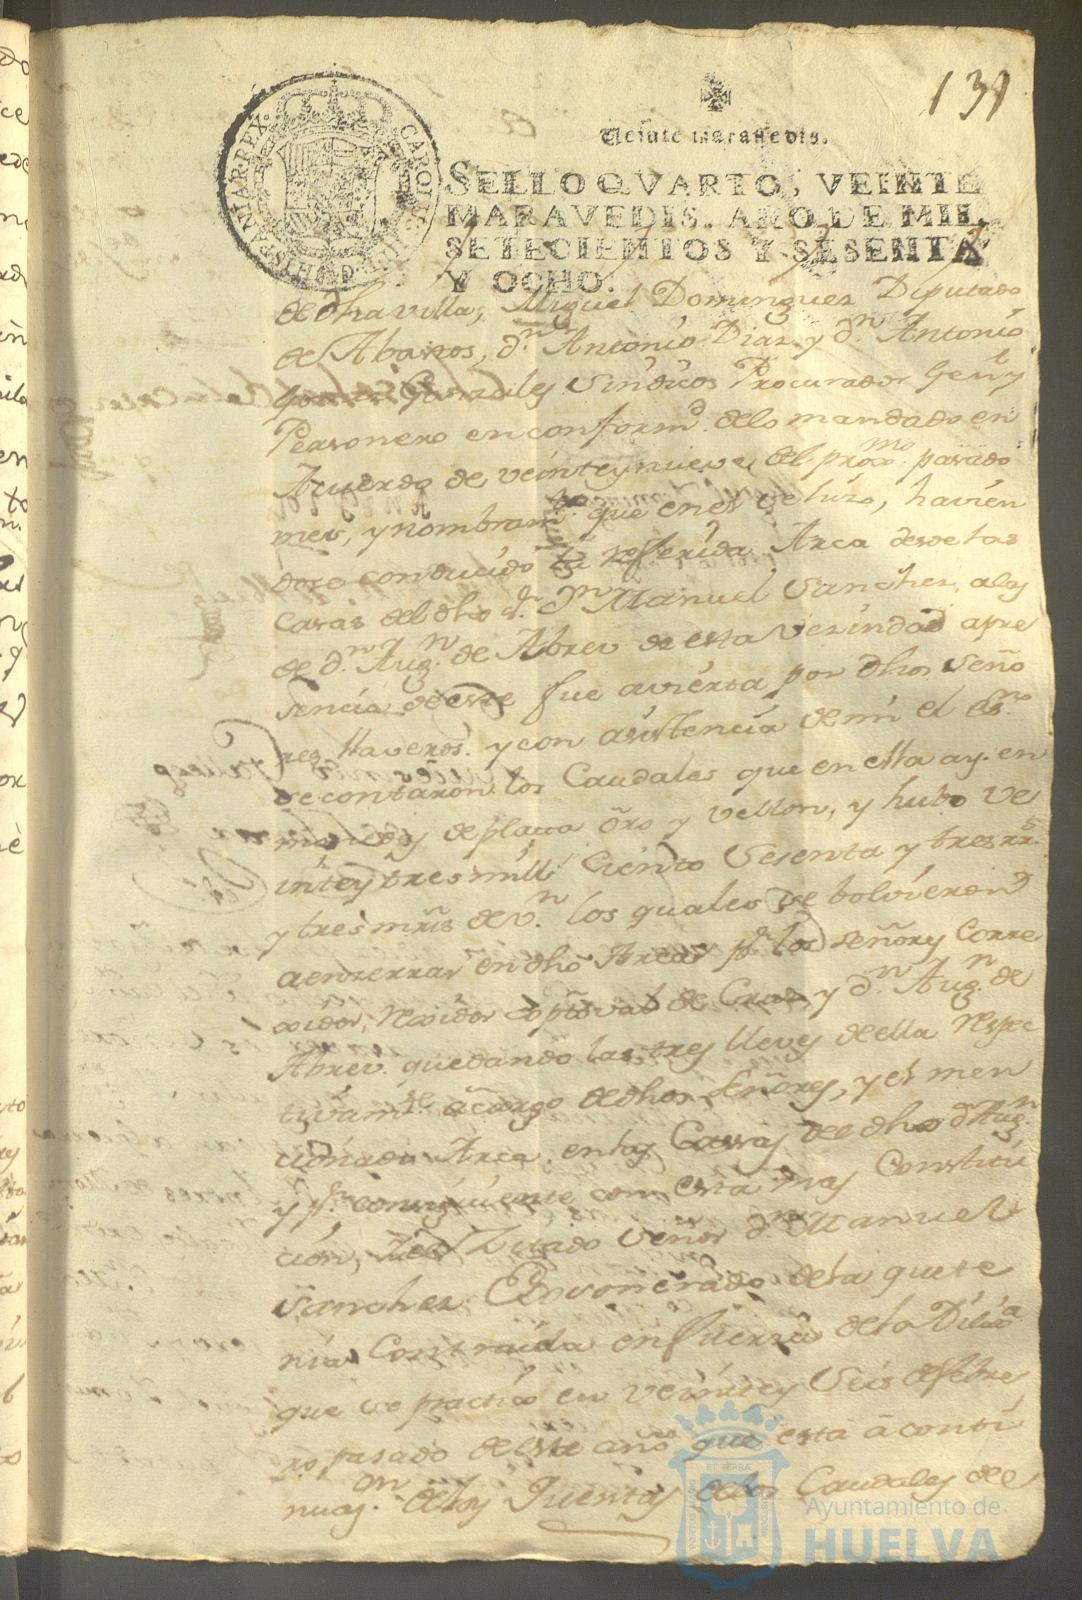 139
Veinte maravedis.
SELLO QVARTO, VEINTE
MARAVEDIS, AÑO DE MIL
SETECIENTOS Y SESENTA
Y OCHO.
CAROLUS III D G HISPANIAR REX
de dha villa, Miguel Dominguez Diputado
de Abastos, dn. Antonio Diaz y dn. Antonio
Gonzales Sindicos Procurador Genl y
Personero en conformd. de lo mandado en
Acuerdo de veinte y nueve del proxmo. pasado
mes, y nombramto. que en el se hizo, havien
dose conducido la referida Arca desde las
casas del dho sr. Dn Manuel Sanchez, a las
de dn. Augn. de Abreu de esta Vezindad a pre
sencia de este fue avierta por dhos Seño
res Llaveros. y con asistencia de mi el Essno.
se contaron los Caudales que en ella ay. en
monedas de plata oro y vellon, y hubo ve
inte y tres mill Ciento Sesenta y tres rrs.
y tres mrs de vn. los quales se bolvieron
a enzerrar en dho Arca pr. los señores Corre
xidor, Rexidor de Cruz, y dn. Augn. de
Abreu. quedando las tres llaves de ella Respec
tivamte. a cargo de dhos Señores, y el men
cionado Arca en las Casas de dho dn Augn.
y pr. consiguiente con esta mas Constitu
cion, Zitado Señor dn. Manuel
Sanchez Exsonerado de la que te
nia Contraida en fuerza de la Diliga.
que se practicó en veinte y Seis de febre
ro pasado de este año que está a conti
nuaon. de las Quentas de los Caudales de
Ayuntamiento de
HUELVA